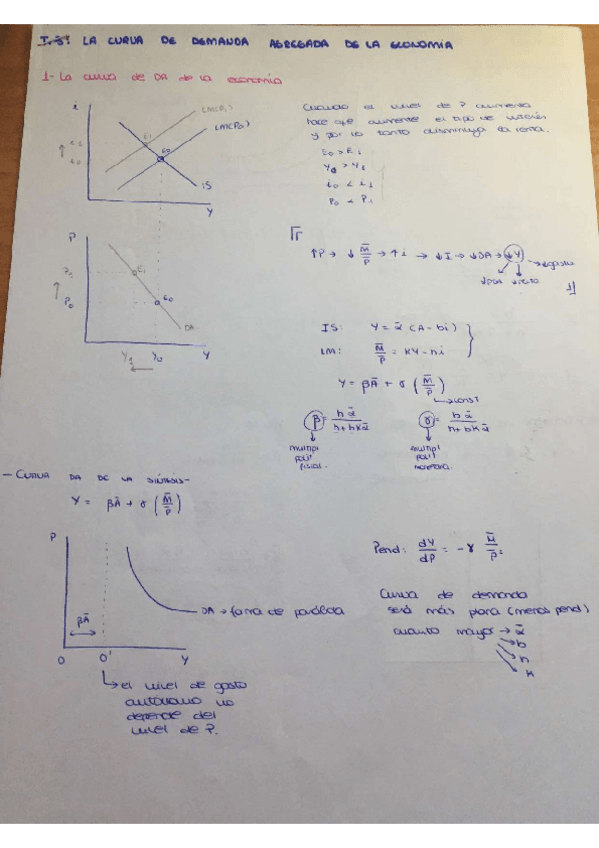 I.3: LA CURVA DE DEMANDA AGREGADA DE LA ECONOMÍA
1- La curva de DA de la economía
i
LM(P₁)
LM(P₀)
E₁
E₀
i₁
i₀
IS
Y
Cuando el nivel de P aumenta
hace que aumente el tipo de interés
y por lo tanto disminuya la renta.
E₀ > E₁
Y₀ > Y₁
i₀ < i₁
P₀ < P₁
P
P₁
P₀
E₁
E₀
DA
Y₁
Y₀
Y
↑P → ↓ M̄/P → ↑i → ↓I → ↓DA → ↓Y
↓gasto
IS: Y = ᾱ (A - bi)
LM: M̄/P = KY - hi
Y = βĀ + γ (M̄/P)
const
β = hᾱ/h+bKᾱ
γ = bᾱ/h+bKᾱ
multipl
polít
fiscal.
multipl
polít
monetaria.
- CURVA DA DE LA SÍNTESIS -
Y = βĀ + γ (M̄/P)
P
βĀ
O
O'
Y
DA → forma de parábola
el nivel de gasto
autónomo no
depende del
nivel de P.
Pend: dY/dP = -γ M̄/P²
Curva de demanda
será más plana (menos pend)
cuanto mayor → ᾱ
b
h
K